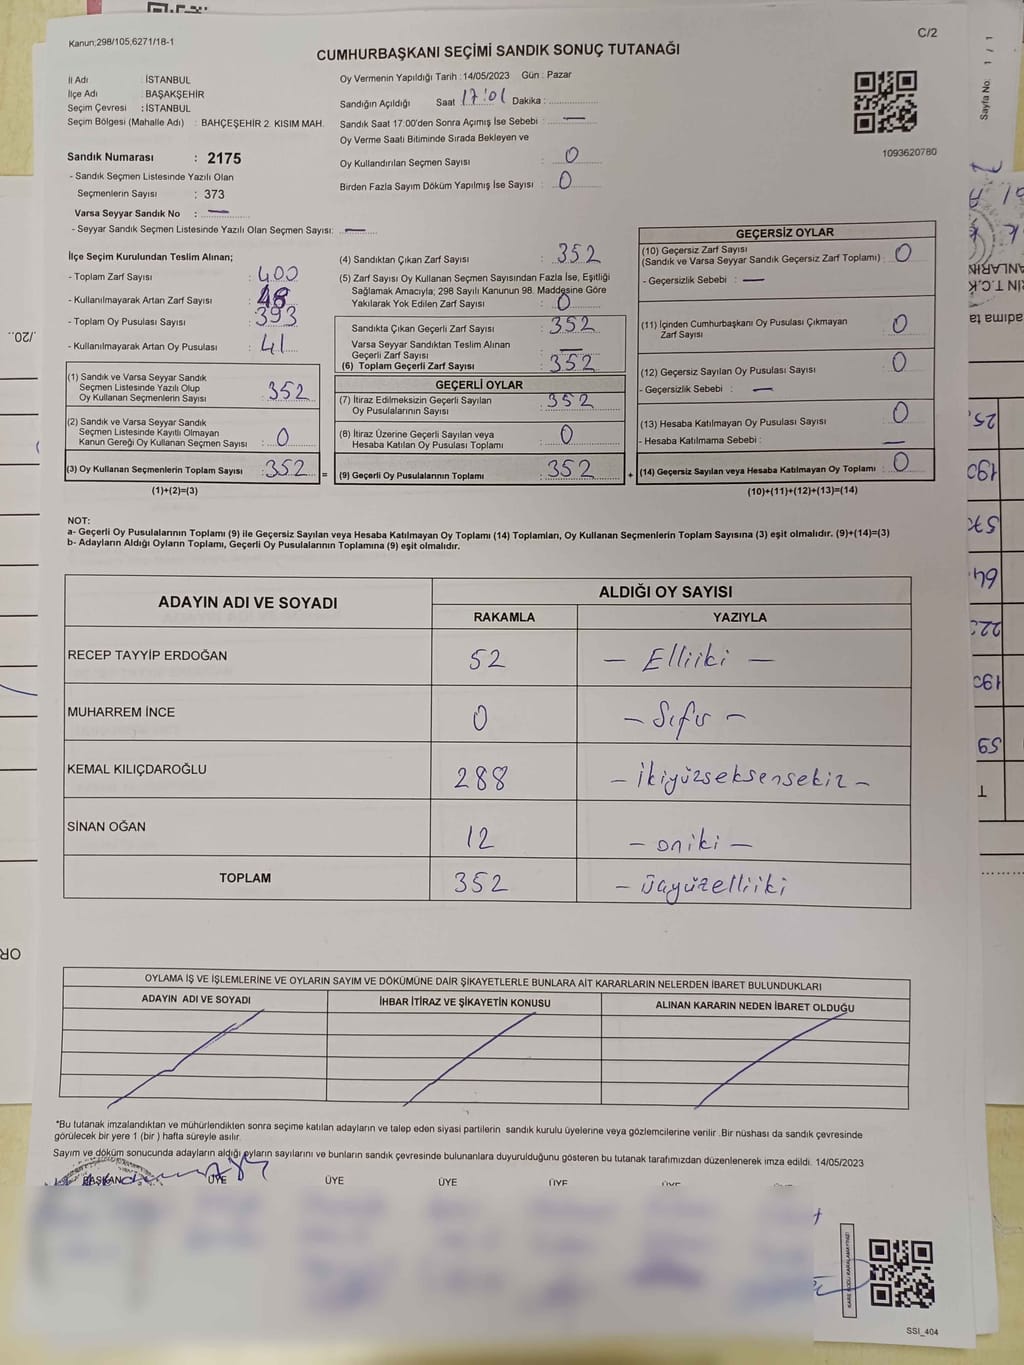 Kanun;298/105,6271/18-1
C/2
CUMHURBAŞKANI SEÇİMİ SANDIK SONUÇ TUTANAĞI
İl Adı : İSTANBUL
İlçe Adı : BAŞAKŞEHİR
Seçim Çevresi : İSTANBUL
Seçim Bölgesi (Mahalle Adı) : BAHÇEŞEHİR 2. KISIM MAH.
Sandık Numarası : 2175
- Sandık Seçmen Listesinde Yazılı Olan
Seçmenlerin Sayısı : 373
Varsa Seyyar Sandık No : —
- Seyyar Sandık Seçmen Listesinde Yazılı Olan Seçmen Sayısı: —
Oy Vermenin Yapıldığı Tarih : 14/05/2023 Gün : Pazar
Sandığın Açıldığı Saat 17:01 Dakika :
Sandık Saat 17:00'den Sonra Açımış İse Sebebi : —
Oy Verme Saati Bitiminde Sırada Bekleyen ve
Oy Kullandırılan Seçmen Sayısı : 0
Birden Fazla Sayım Döküm Yapılmış İse Sayısı : 0
1093620780
İlçe Seçim Kurulundan Teslim Alınan;
- Toplam Zarf Sayısı : 400
- Kullanılmayarak Artan Zarf Sayısı : 48
- Toplam Oy Pusulası Sayısı : 393
- Kullanılmayarak Artan Oy Pusulası : 41
(1) Sandık ve Varsa Seyyar Sandık
Seçmen Listesinde Yazılı Olup
Oy Kullanan Seçmenlerin Sayısı : 352
(2) Sandık ve Varsa Seyyar Sandık
Seçmen Listesinde Kayıtlı Olmayan
Kanun Gereği Oy Kullanan Seçmen Sayısı : 0
(3) Oy Kullanan Seçmenlerin Toplam Sayısı : 352 =
(1)+(2)=(3)
(4) Sandıktan Çıkan Zarf Sayısı : 352
(5) Zarf Sayısı Oy Kullanan Seçmen Sayısından Fazla İse, Eşitliği
Sağlamak Amacıyla; 298 Sayılı Kanunun 98. Maddesine Göre
Yakılarak Yok Edilen Zarf Sayısı : 0
Sandıkta Çıkan Geçerli Zarf Sayısı : 352
Varsa Seyyar Sandıktan Teslim Alınan
Geçerli Zarf Sayısı : —
(6) Toplam Geçerli Zarf Sayısı : 352
GEÇERLİ OYLAR
(7) İtiraz Edilmeksizin Geçerli Sayılan
Oy Pusulalarının Sayısı : 352
(8) İtiraz Üzerine Geçerli Sayılan veya
Hesaba Katılan Oy Pusulası Toplamı : 0
(9) Geçerli Oy Pusulalarının Toplamı : 352 +
GEÇERSİZ OYLAR
(10) Geçersiz Zarf Sayısı
(Sandık ve Varsa Seyyar Sandık Geçersiz Zarf Toplamı) : 0
- Geçersizlik Sebebi : —
(11) İçinden Cumhurbaşkanı Oy Pusulası Çıkmayan
Zarf Sayısı : 0
(12) Geçersiz Sayılan Oy Pusulası Sayısı : 0
- Geçersizlik Sebebi : —
(13) Hesaba Katılmayan Oy Pusulası Sayısı : 0
- Hesaba Katılmama Sebebi : —
(14) Geçersiz Sayılan veya Hesaba Katılmayan Oy Toplamı : 0
(10)+(11)+(12)+(13)=(14)
NOT:
a- Geçerli Oy Pusulalarının Toplamı (9) ile Geçersiz Sayılan veya Hesaba Katılmayan Oy Toplamı (14) Toplamları, Oy Kullanan Seçmenlerin Toplam Sayısına (3) eşit olmalıdır. (9)+(14)=(3)
b- Adayların Aldığı Oyların Toplamı, Geçerli Oy Pusulalarının Toplamına (9) eşit olmalıdır.
ADAYIN ADI VE SOYADI
ALDIĞI OY SAYISI
RAKAMLA YAZIYLA
RECEP TAYYİP ERDOĞAN 52 — Elliiki —
MUHARREM İNCE 0 — Sıfır —
KEMAL KILIÇDAROĞLU 288 — İkiyüzseksensekiz —
SİNAN OĞAN 12 — oniki —
TOPLAM 352 — Üçyüzelliiki
OYLAMA İŞ VE İŞLEMLERİNE VE OYLARIN SAYIM VE DÖKÜMÜNE DAİR ŞİKAYETLERLE BUNLARA AİT KARARLARIN NELERDEN İBARET BULUNDUKLARI
ADAYIN ADI VE SOYADI
İHBAR İTİRAZ VE ŞİKAYETİN KONUSU
ALINAN KARARIN NEDEN İBARET OLDUĞU
*Bu tutanak imzalandıktan ve mühürlendikten sonra seçime katılan adayların ve talep eden siyasi partilerin sandık kurulu üyelerine veya gözlemcilerine verilir .Bir nüshası da sandık çevresinde
görülecek bir yere 1 (bir ) hafta süreyle asılır.
Sayım ve döküm sonucunda adayların aldığı oyların sayılarını ve bunların sandık çevresinde bulunanlara duyurulduğunu gösteren bu tutanak tarafımızdan düzenlenerek imza edildi. 14/05/2023
BAŞKAN ÜYE ÜYE ÜYE ÜYE
SSI_404
Sayfa No: 1 / 1